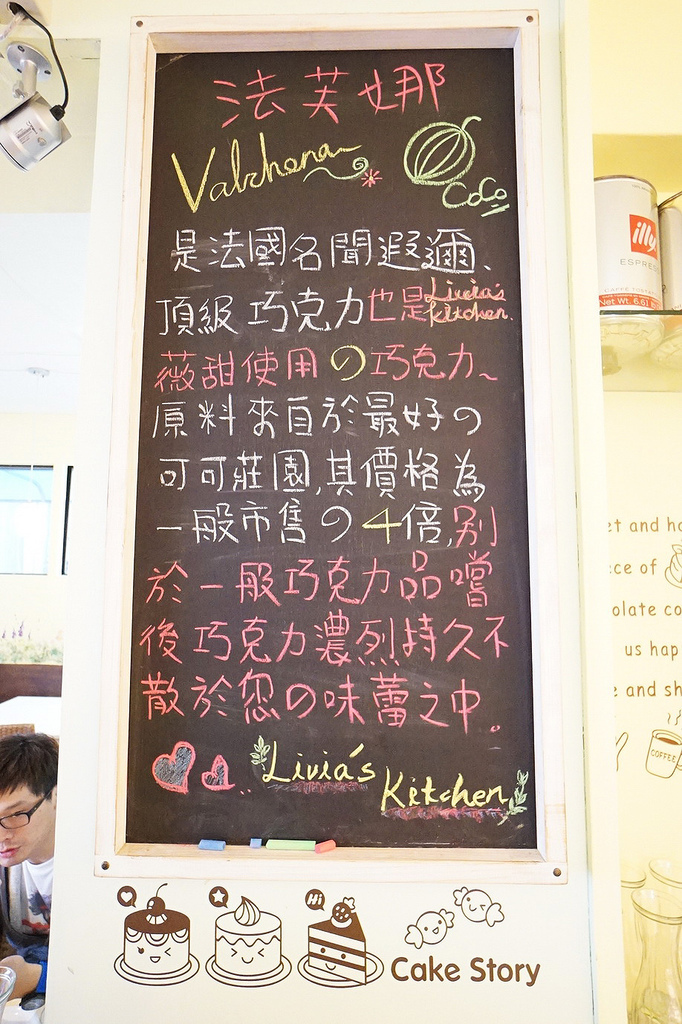 法芙娜
Valrhona
CoCo
是法國名聞遐邇、
頂級巧克力也是Livia's Kitchen.
薇甜使用の巧克力~
原料來自於最好の
可可莊園,其價格為
一般市售の4倍,別
於一般巧克力品嚐
後巧克力濃烈持久不
散於您の味蕾之中。
Livia's
Kitchen
Hi
Cake Story
illy
ESPRESSO
Net Wt. 6.61
et and ho
ece of
olate co
us hap
e and sh
COFFEE